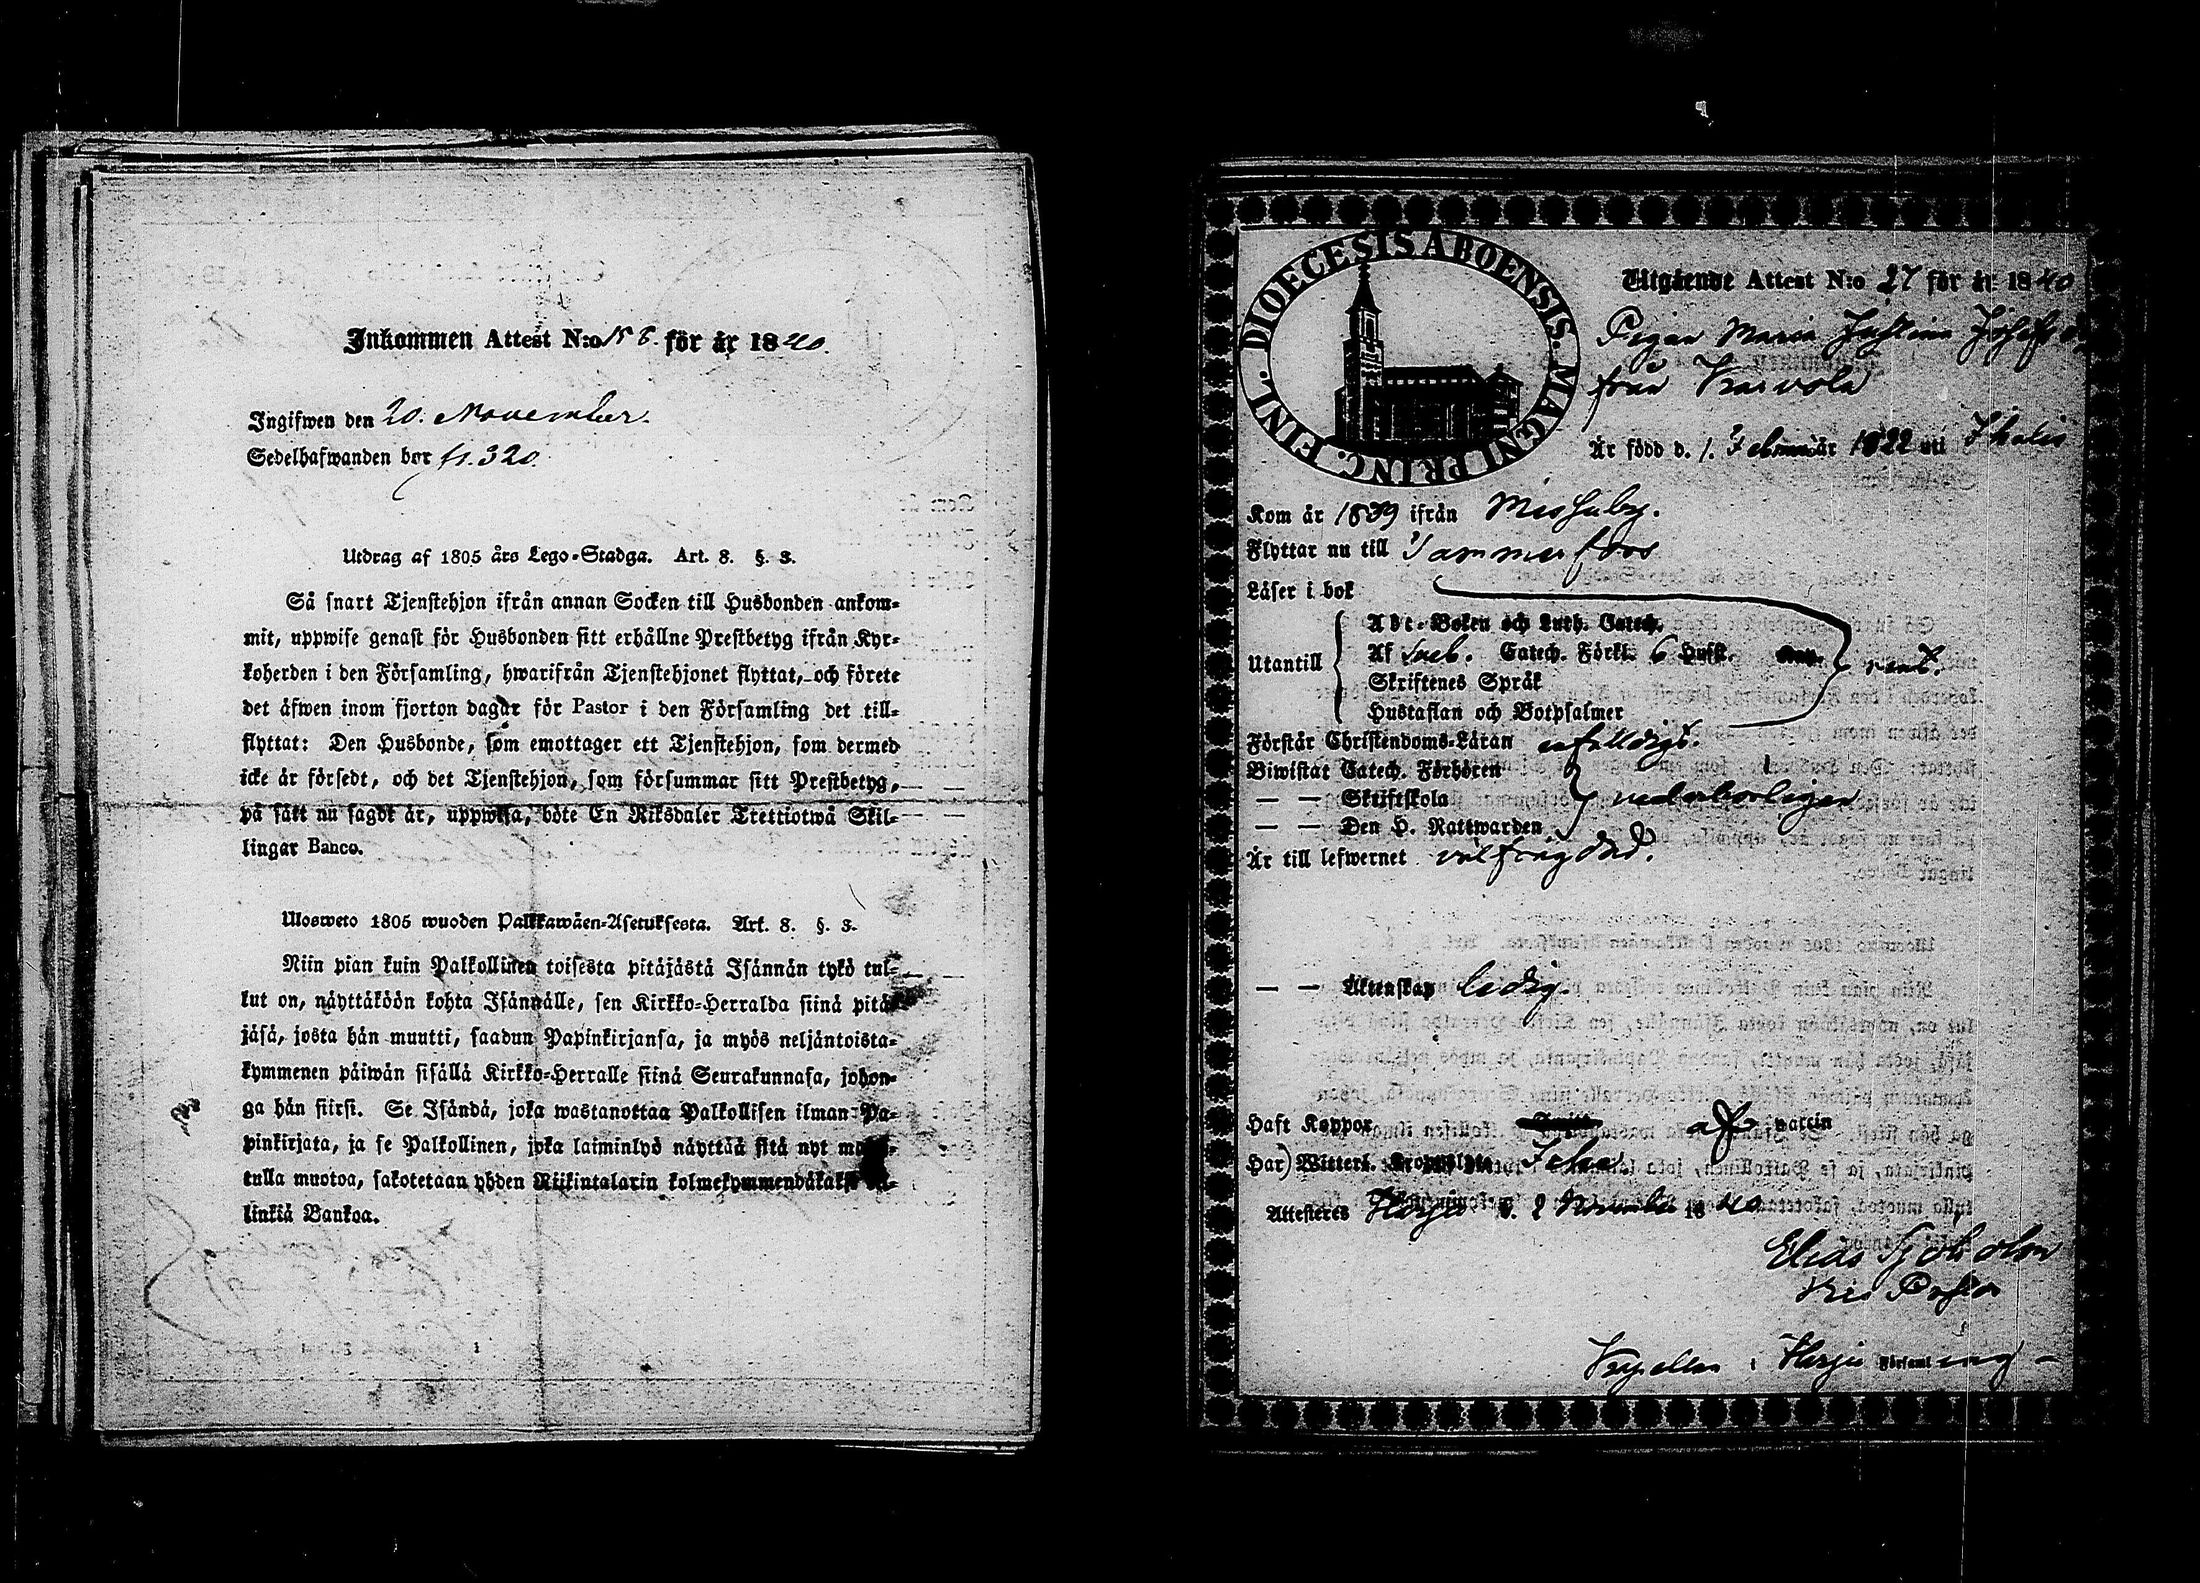 Inkommen Attest N:o 156. för år 1840.
Ingifwen den 20. November.
Sedelhafwanden bor fr. 320.
Utdrag af 1805 års Lego-Stadga. Art. 8. §. 3.
Så snart Tjenstehjon ifrån annan Socken till Husbonden ankom-
mit, uppwise genast för Husbonden sitt erhållne Prestbetyg ifrån Kyr-
koherden i den Församling, hwarifrån Tjenstehjonet flyttat, och förete
det äfwen inom fjorton dagar för Pastor i den Församling det till-
flyttat: Den Husbonde, som emottager ett Tjenstehjon, som dermed
icke är försedt, och det Tjenstehjon, som försummar sitt Prestbetyg,
på sätt nu sagdt är, uppwisa, böte En Riksdaler Trettiotwå Skil-
lingar Banco.
Ulosweto 1805 wuoden Palkkawäen-Asetuksesta. Art. 8. §. 3.
Niin pian kuin Palkollinen toisesta pitäjästä Isännän tykö tul-
kut on, näyttäköön kohta Isännälle, sen Kirkko-Herralda siinä pitä-
jäsä, josta hän muutti, saadun Papinkirjansa, ja myös neljäntoista-
kymmenen päiwän sisällä Kirkko-Herralle siinä Seurakunnasa, johon-
ga hän siirst. Se Isändä, joka wastanottaa Palkollisen ilman Pa-
pinkirjata, ja se Palkollinen, joka laiminlyö näyttää sitä nyt
tulla muotoa, sakotetaan yhden Riikintalarin kolmekymmendäkaksi
linkiä Bankoa.
DIOECESIS ABOENSIS. MAGNI PRINC. FINL.
Utgående Attest N:o 27 för år 1840
Pigan Maria Justina
från Karvola
Är född d. 1. Februar år 1822 uti Ikalis
Kom år 1839 ifrån
Flyttar nu till Tammerfors
Läser i bok
Abc-Boken och Luth. Catech.
Utantill Af Sveb. Catech. Förkl. 6 Hufst. rent.
Skriftenes Språk
Hustaflan och Botpsalmer
Förstår Christendoms-Läran enfalldigt.
Biwistat Catech. Förhören
— — Skriftskola wederborligen
— — Den H. Nattwarden
Är till lefwernet välfrägdad.
— — Äktenskap ledig.
Haft Koppor af vaccin
Attesteres Harju d. 2 November 1840
Elias
Kapellan i Harju Församling